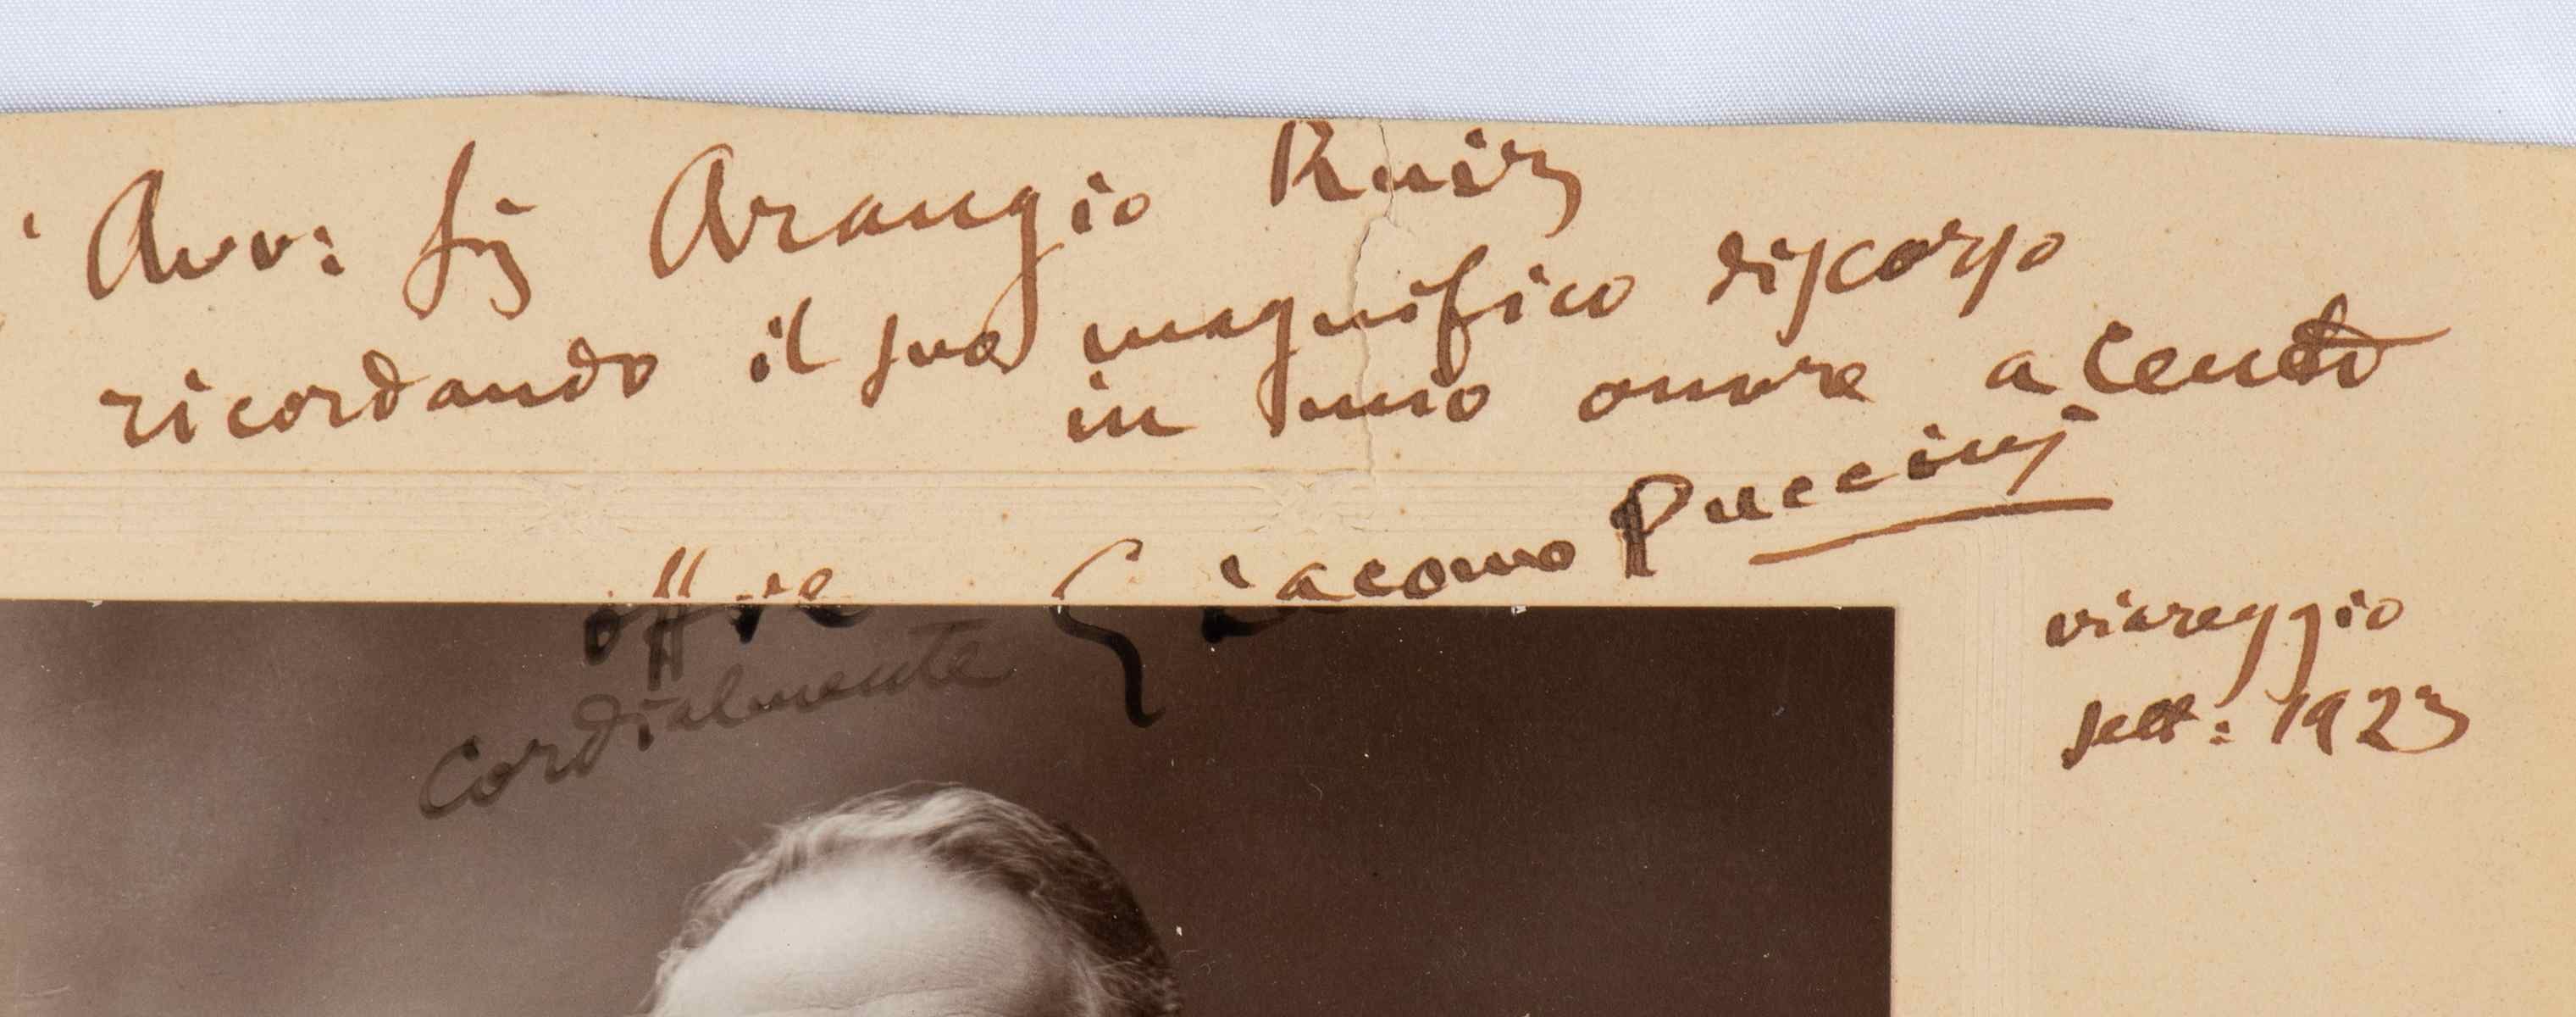 ' Avv: Sig Arangio Ruiz
ricordando il suo magnifico discorso
in mio onore a Cento
offre Giacomo Puccini
cordialmente
viareggio
sett: 1923